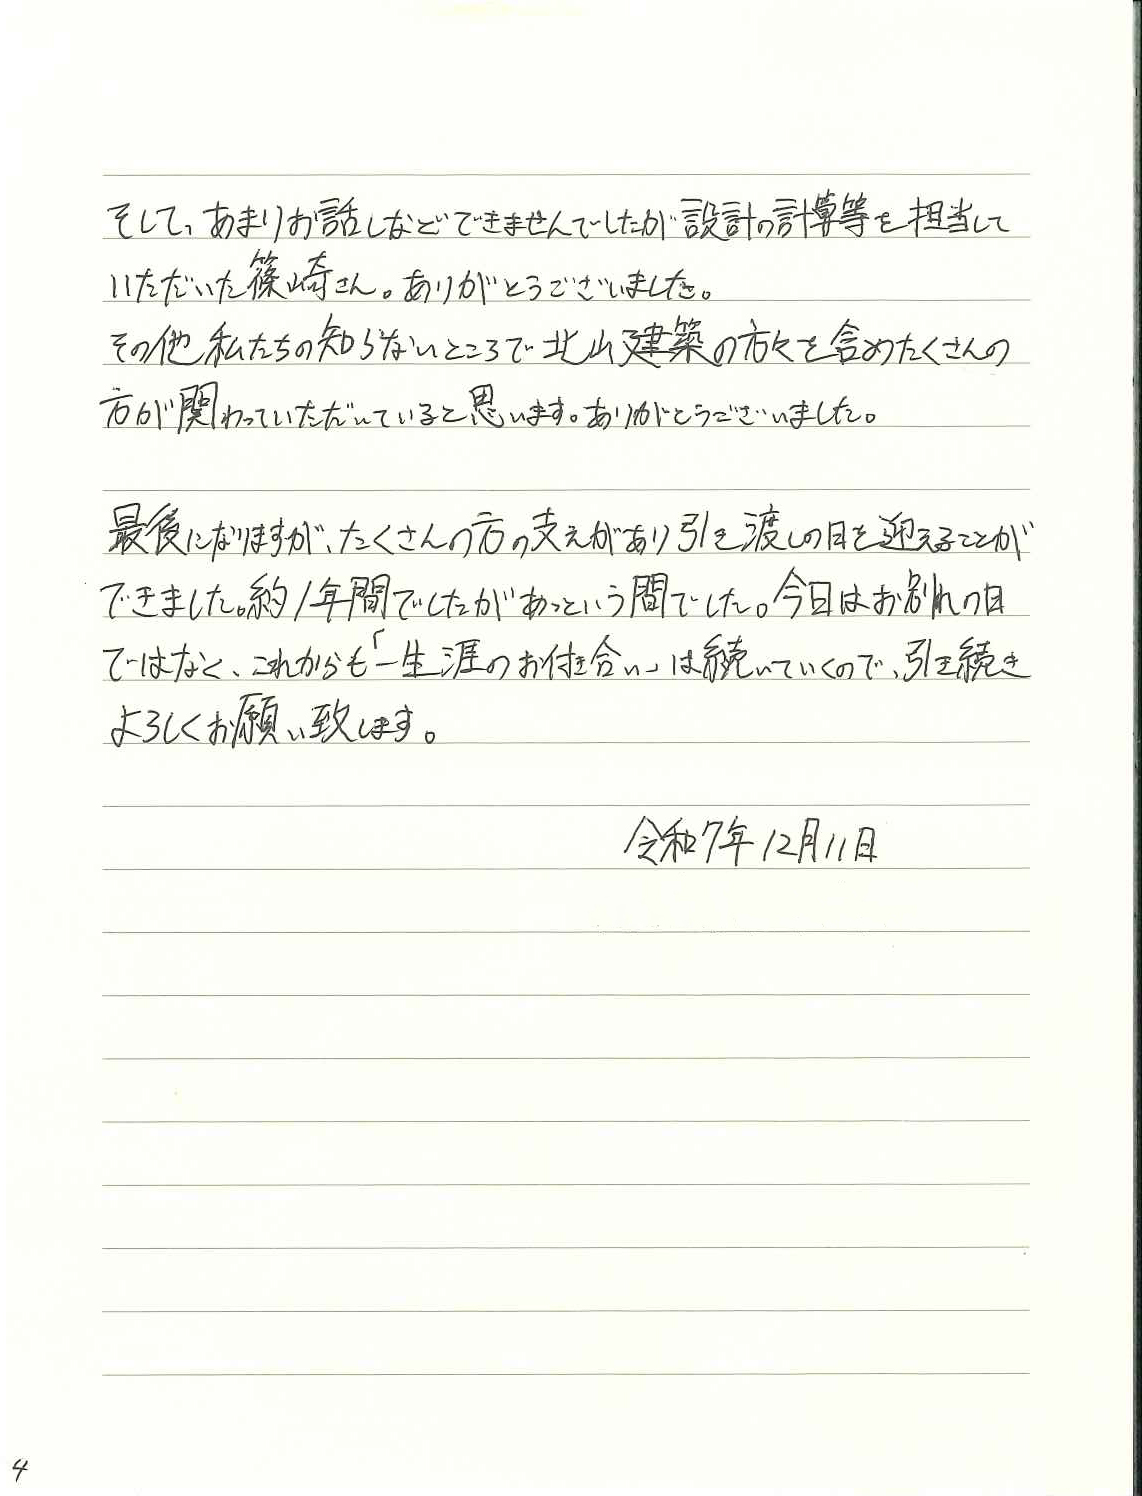 そして、あまりお話しなどできませんでしたが設計の計算等を担当して
いただいた篠崎さん。ありがとうございました。
その他私たちの知らないところで北山建築の方々を含めたくさんの
方が関わっていただいていると思います。ありがとうございました。
最後になりますが、たくさんの方の支えがあり引き渡しの日を迎えることが
できました。約1年間でしたがあっという間でした。今日はお別れの日
ではなく、これからも「一生涯のお付き合い」は続いていくので、引き続き
よろしくお願い致します。
令和7年12月11日
4